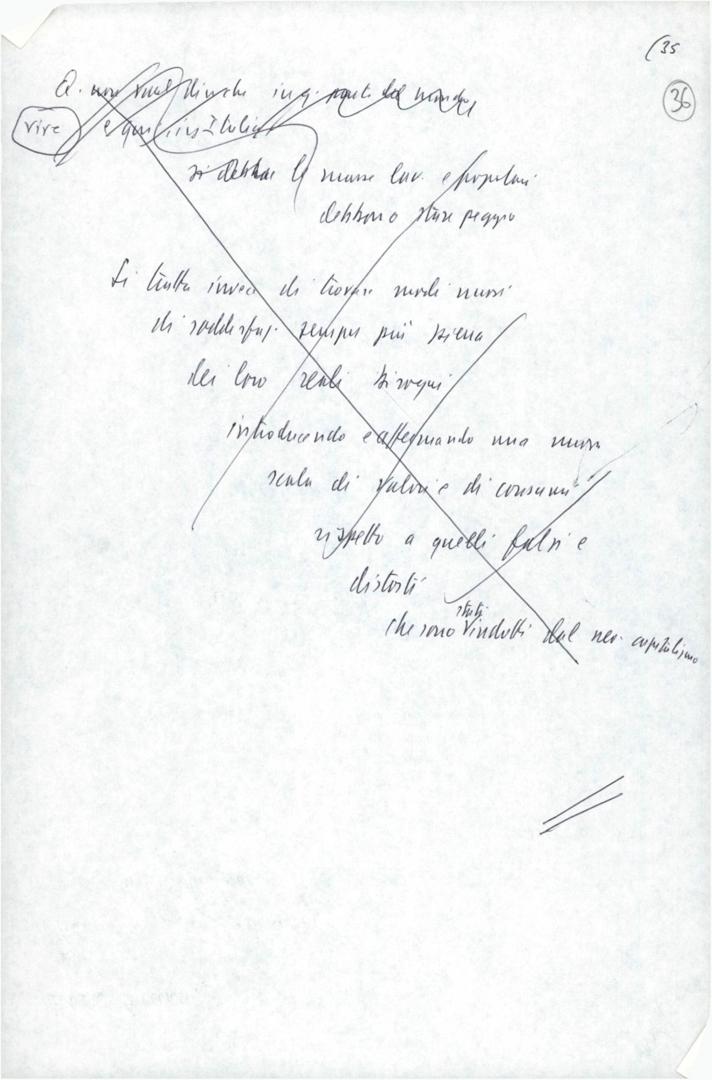 (35
36
Q. non vuol dire che in q. parti del mondo,
vive e qui, in Italia
si debba le masse lav. e popolari
debbono stare peggio
Si tratta invece di trovare modi nuovi
di soddisfaz. sempre più piena
dei loro reali bisogni
introducendo e affermando una nuova
scala di valori e di consumi
rispetto a quelli falsi e
distorti
stati
che sono indotti dal neo-capitalismo